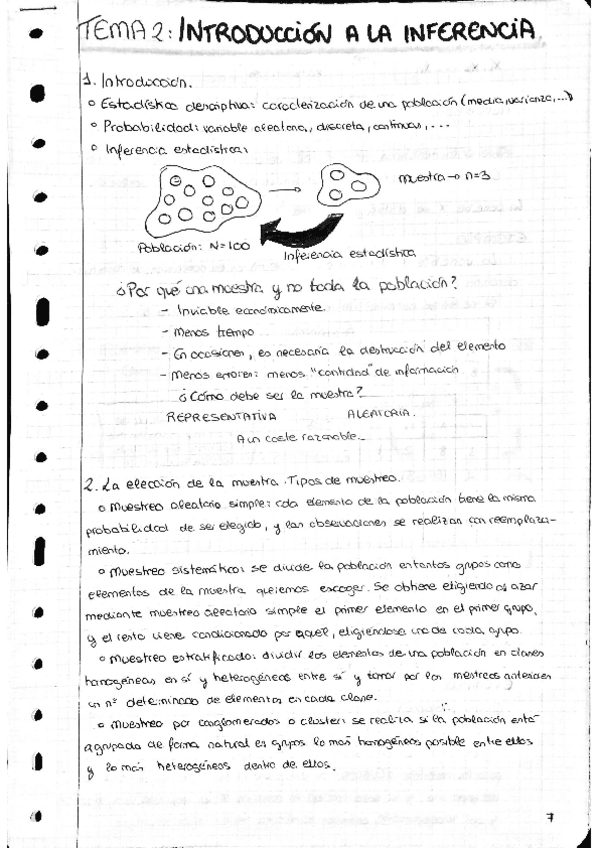 TEMA 2: INTRODUCCIÓN A LA INFERENCIA
1. Introducción.
o Estadística descriptiva: caracterización de una población (media, varianza, ...)
o Probabilidad: variable aleatoria, discreta, continuas, ...
o Inferencia estadística:
muestra → n=3
Población: N=100
Inferencia estadística
¿Por qué una muestra y no toda la población?
- Inviable económicamente.
- Menos tiempo
- En ocasiones, es necesaria la destrucción del elemento
- Menos errores: menos "cantidad" de información
¿Cómo debe ser la muestra?
REPRESENTATIVA ALEATORIA.
A un coste razonable.
2. La elección de la muestra. Tipos de muestreo.
o Muestreo aleatorio simple: cada elemento de la población tiene la misma
probabilidad de ser elegido, y las observaciones se realizan con reemplaza-
miento.
o Muestreo sistemático: se divide la población en tantos grupos como
elementos de la muestra queremos escoger. Se obtiene eligiendo al azar
mediante muestreo aleatorio simple el primer elemento en el primer grupo,
y el resto viene condicionado por aquel, eligiendose uno de cada grupo.
o Muestreo estratificado: dividir los elementos de una población en clases
homogéneas en sí y heterogéneas entre sí y tomar por los muestreos anteriores
un nº determinado de elementos en cada clase.
o Muestreo por conglomerados o cluster: se realiza si la población está
agrupada de forma natural en grupos lo más homogéneos posible entre ellos
y lo más heterogéneos dentro de ellos.
7